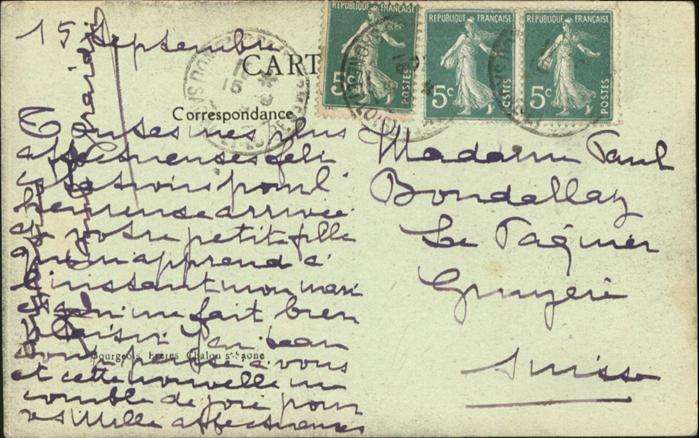 15 Septembre
CART
RÉPUBLIQUE FRANÇAISE
5c
POSTES
RÉPUBLIQUE FRANÇAISE
5c
POSTES
RÉPUBLIQUE FRANÇAISE
5c
POSTES
Correspondance
Toutes mes plus
affectueuses féli
pour l'
heureuse arrivée
de votre petite fille
apprend à
l'instant mon mari
et qui me fait bien
plaisir
pensé à vous
et cette nouvelle me
comble de joie pour
vs Mille affectueuses
Bourgeois Frères Chalon s/ Saone
Madame Paul
Bondallaz
Le Pâquier
Gruyère
Suisse